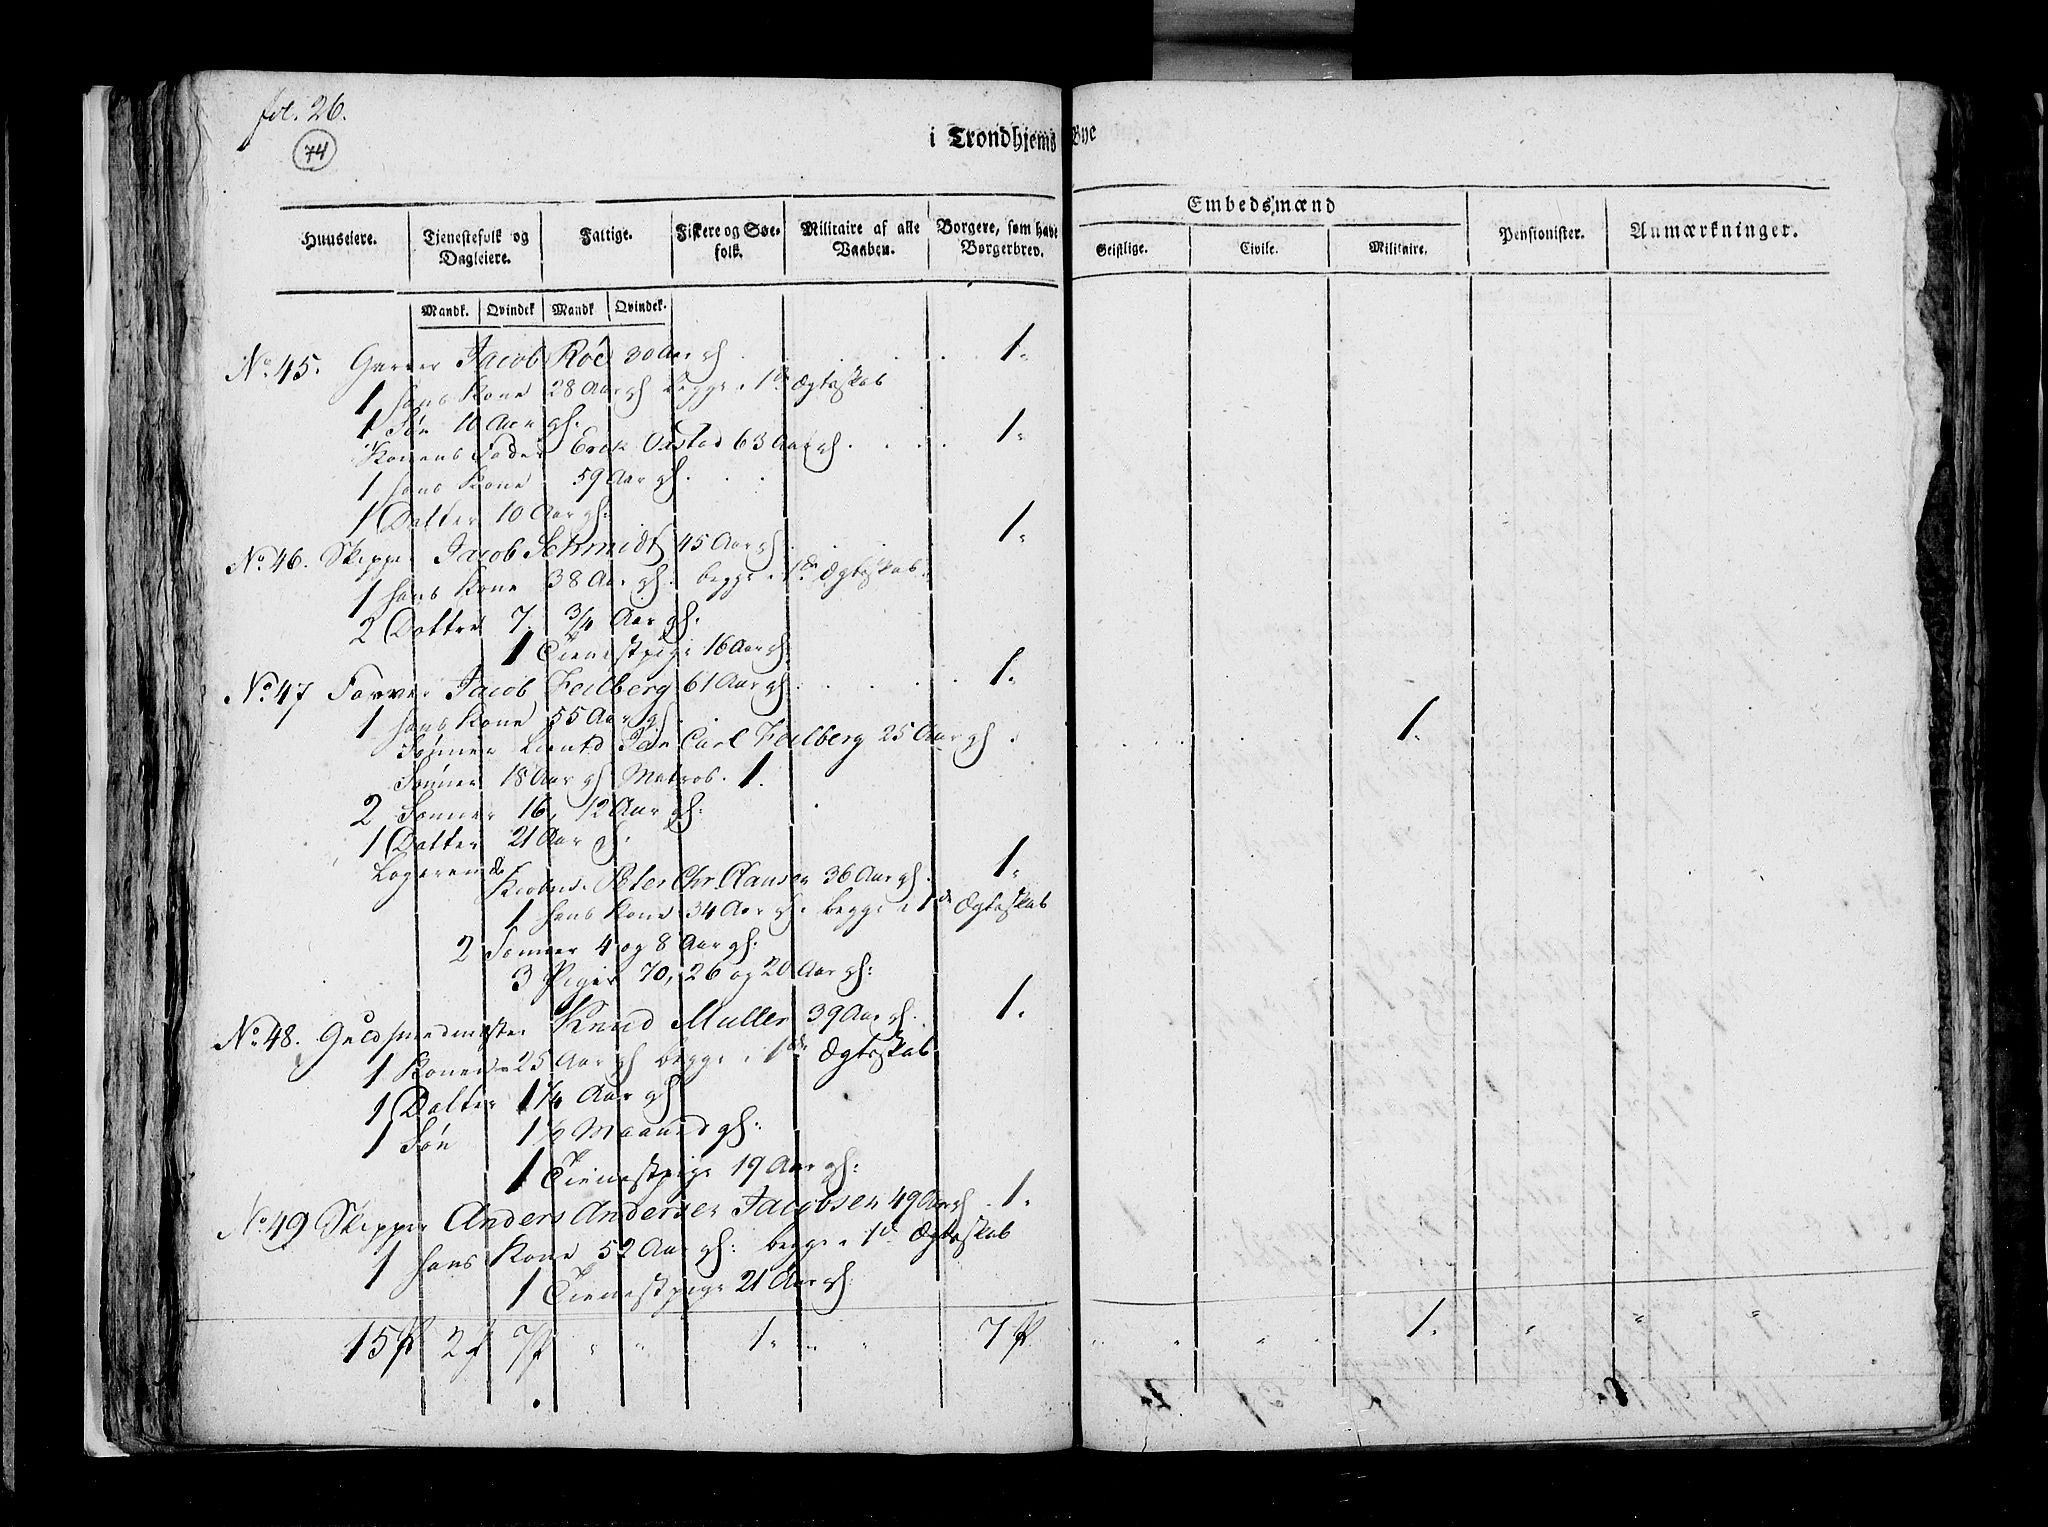 fol. 26.
74
i Trondhjems Bye
Huuseiere. Tjenestefolk og Dagleiere. Fattige. Fiskere og Søefolk. Militaire af alle Vaaben. Borgere, som have Borgerbrev. Embedsmænd Geistlige. Civile. Militaire. Pensionister. Anmærkninger.
Mandk. Qvindek Mandk Qvindek.
No. 45. Garver Jacob Roe 30 Aar gl. 1.
1 hans Kone 28 Aar gl begge i 1de Ægteskab
1 Søn 10 Aar gl.
Konens Fader Erik Oxstad 63 Aar gl. 1.
1 hans Kone 59 Aar gl.
1 Datter 10 Aar gl:
No. 46. Skipper Jacob Schmidt 45 Aar gl. 1.
1 hans Kone 38 Aar gl. begge i 1de Ægteskab.
2 Dottre 7. 3/4 Aar gl:
1 Tienestpige 16 Aar gl:
No. 47 Farver Jacob Feilberg 61 Aar gl. 1.
1 hans Kone 55 Aar gl.
Sønner Carl Feilberg 25 Aar gl. 1.
Sønner 18 Aar gl Matros. 1.
2 Sønner 16, 12 Aar gl:
1 Datter 21 Aar gl.
Logerende
Kiøbm. Peter Chr. Clausen 36 Aar gl. 1.
1 hans Kone 34 Aar gl. begge i 1de Ægteskab
2 Sønner 4 og 8 Aar gl.
3 Piger 70, 26 og 20 Aar gl:
No. 48. Guldsmedmester Knud Muller 39 Aar gl. 1.
1 Kone 25 Aar gl begge i 1de Ægteskab
1 Datter 1 1/4 Aar gl
1 Søn 1 1/2 Maaned gl:
1 Tienestpige 19 Aar gl:
No. 49 Skipper Anders Andersen Jacobsen 49 Aar gl. 1.
1 hans Kone 52 Aar gl: begge i 1de Ægteskab
1 Tienestpige 21 Aar gl.
15 2 7 " " 1. " 7 " " " " 1. " " "